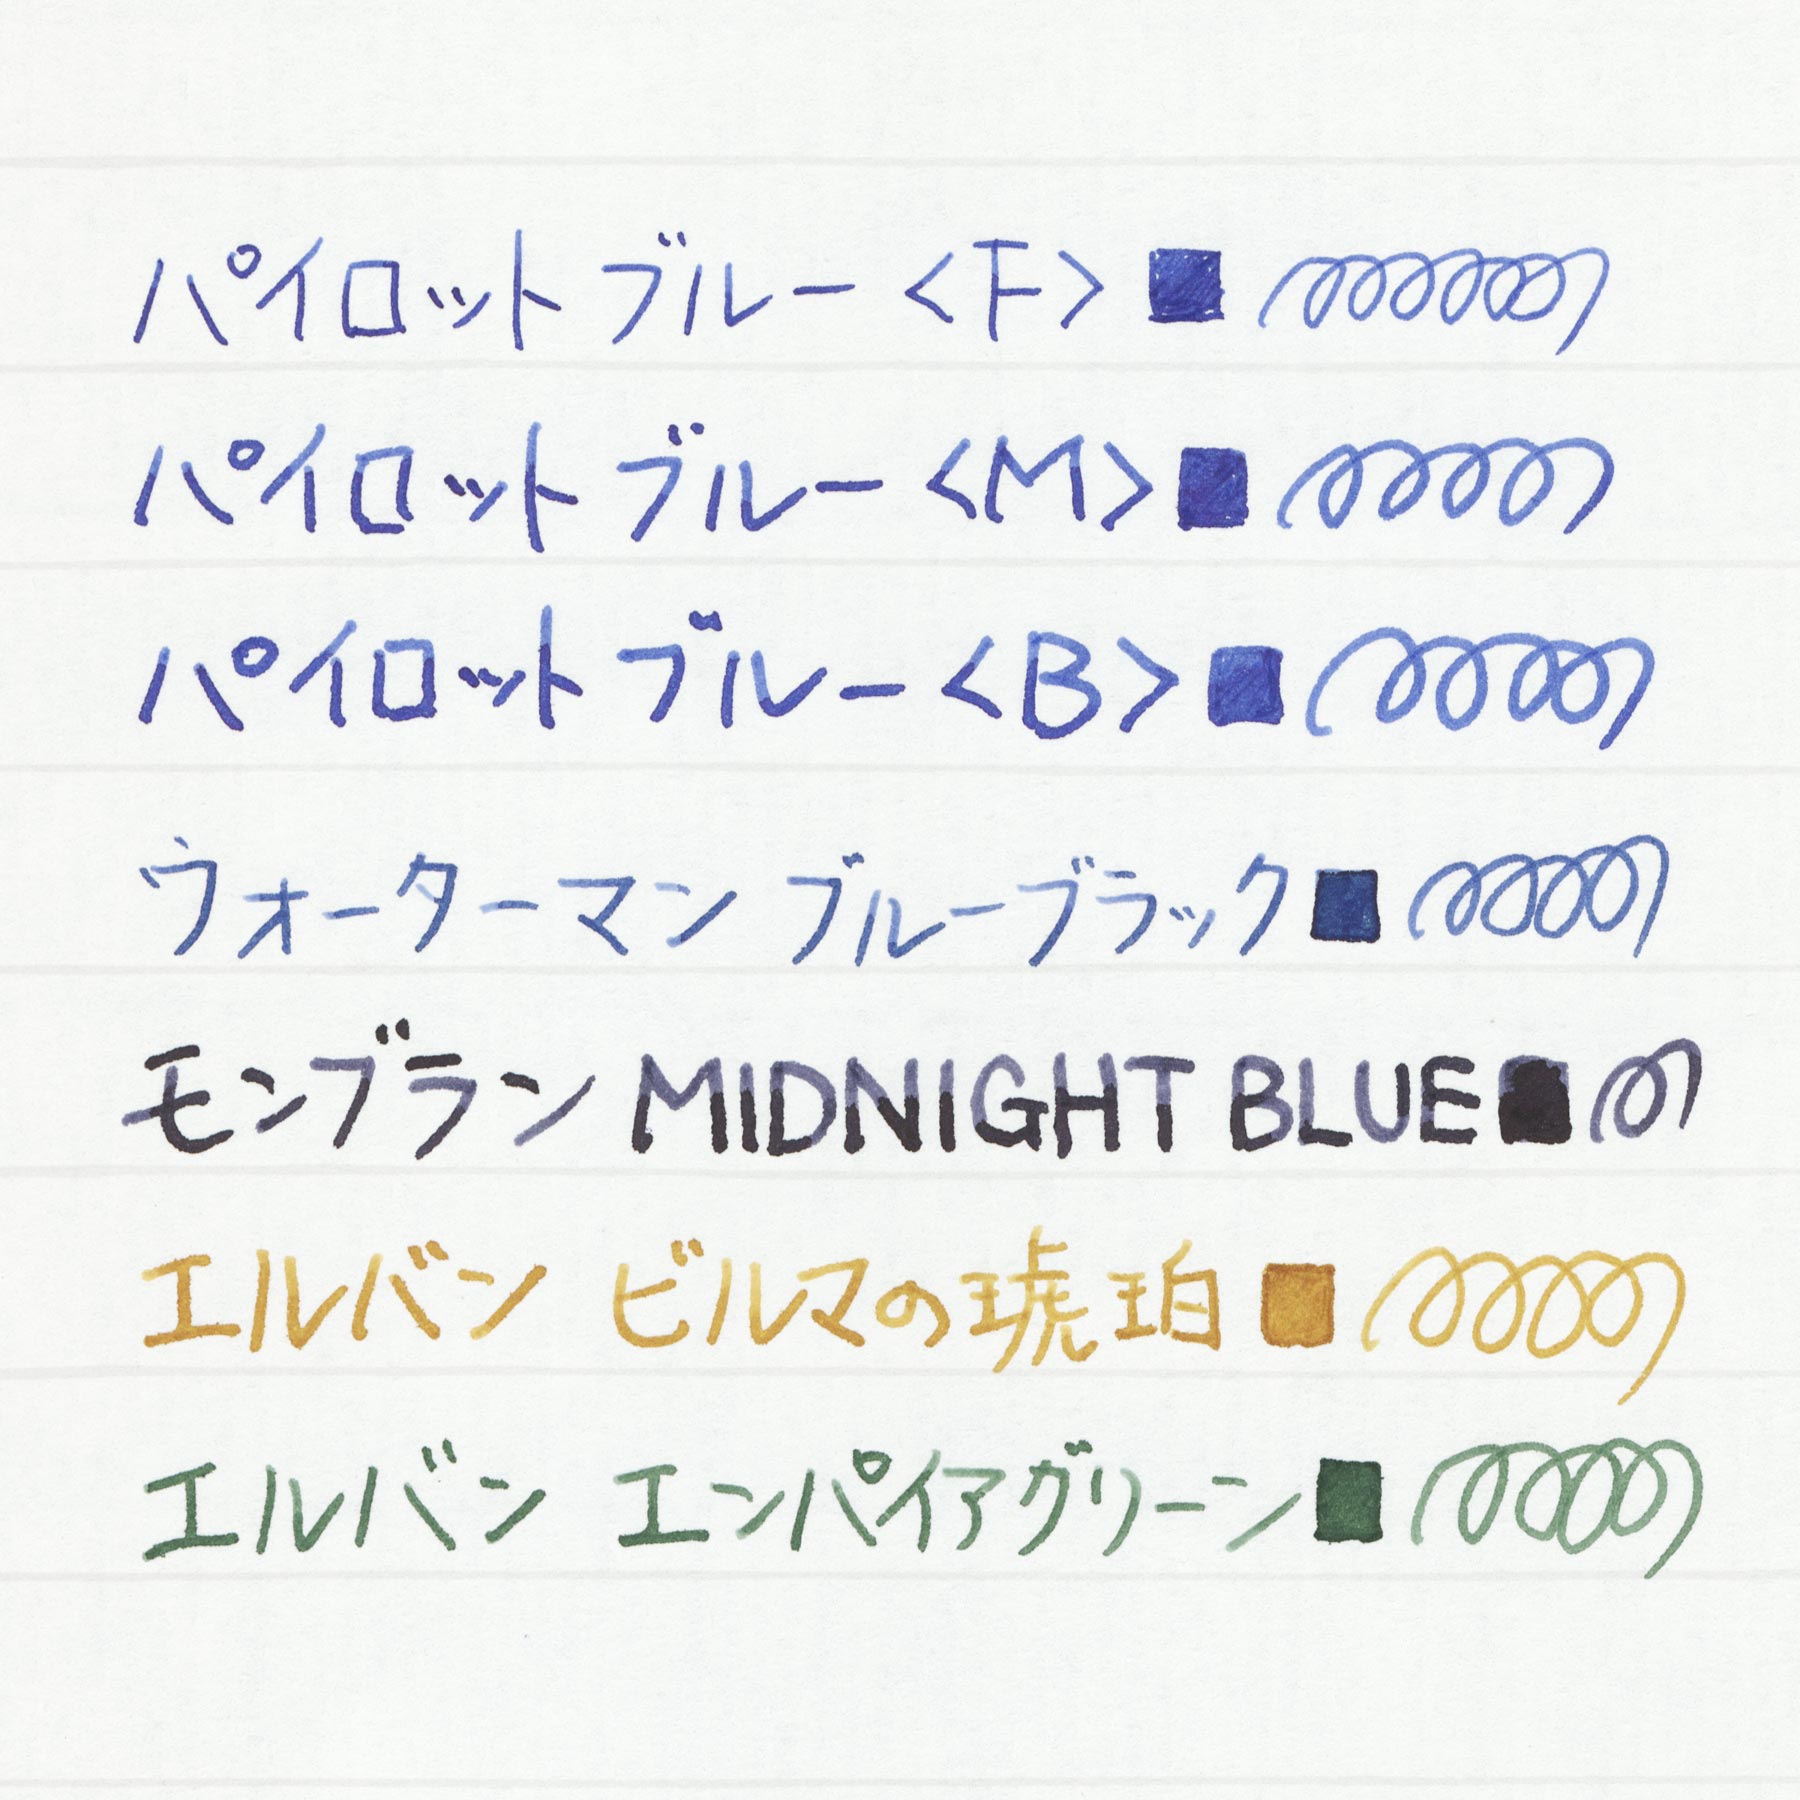 パイロット ブルー <F>
パイロット ブルー <M>
パイロット ブルー <B>
ウォーターマン ブルーブラック
モンブラン MIDNIGHT BLUE
エルバン ビルマの琥珀
エルバン エンパイアグリーン